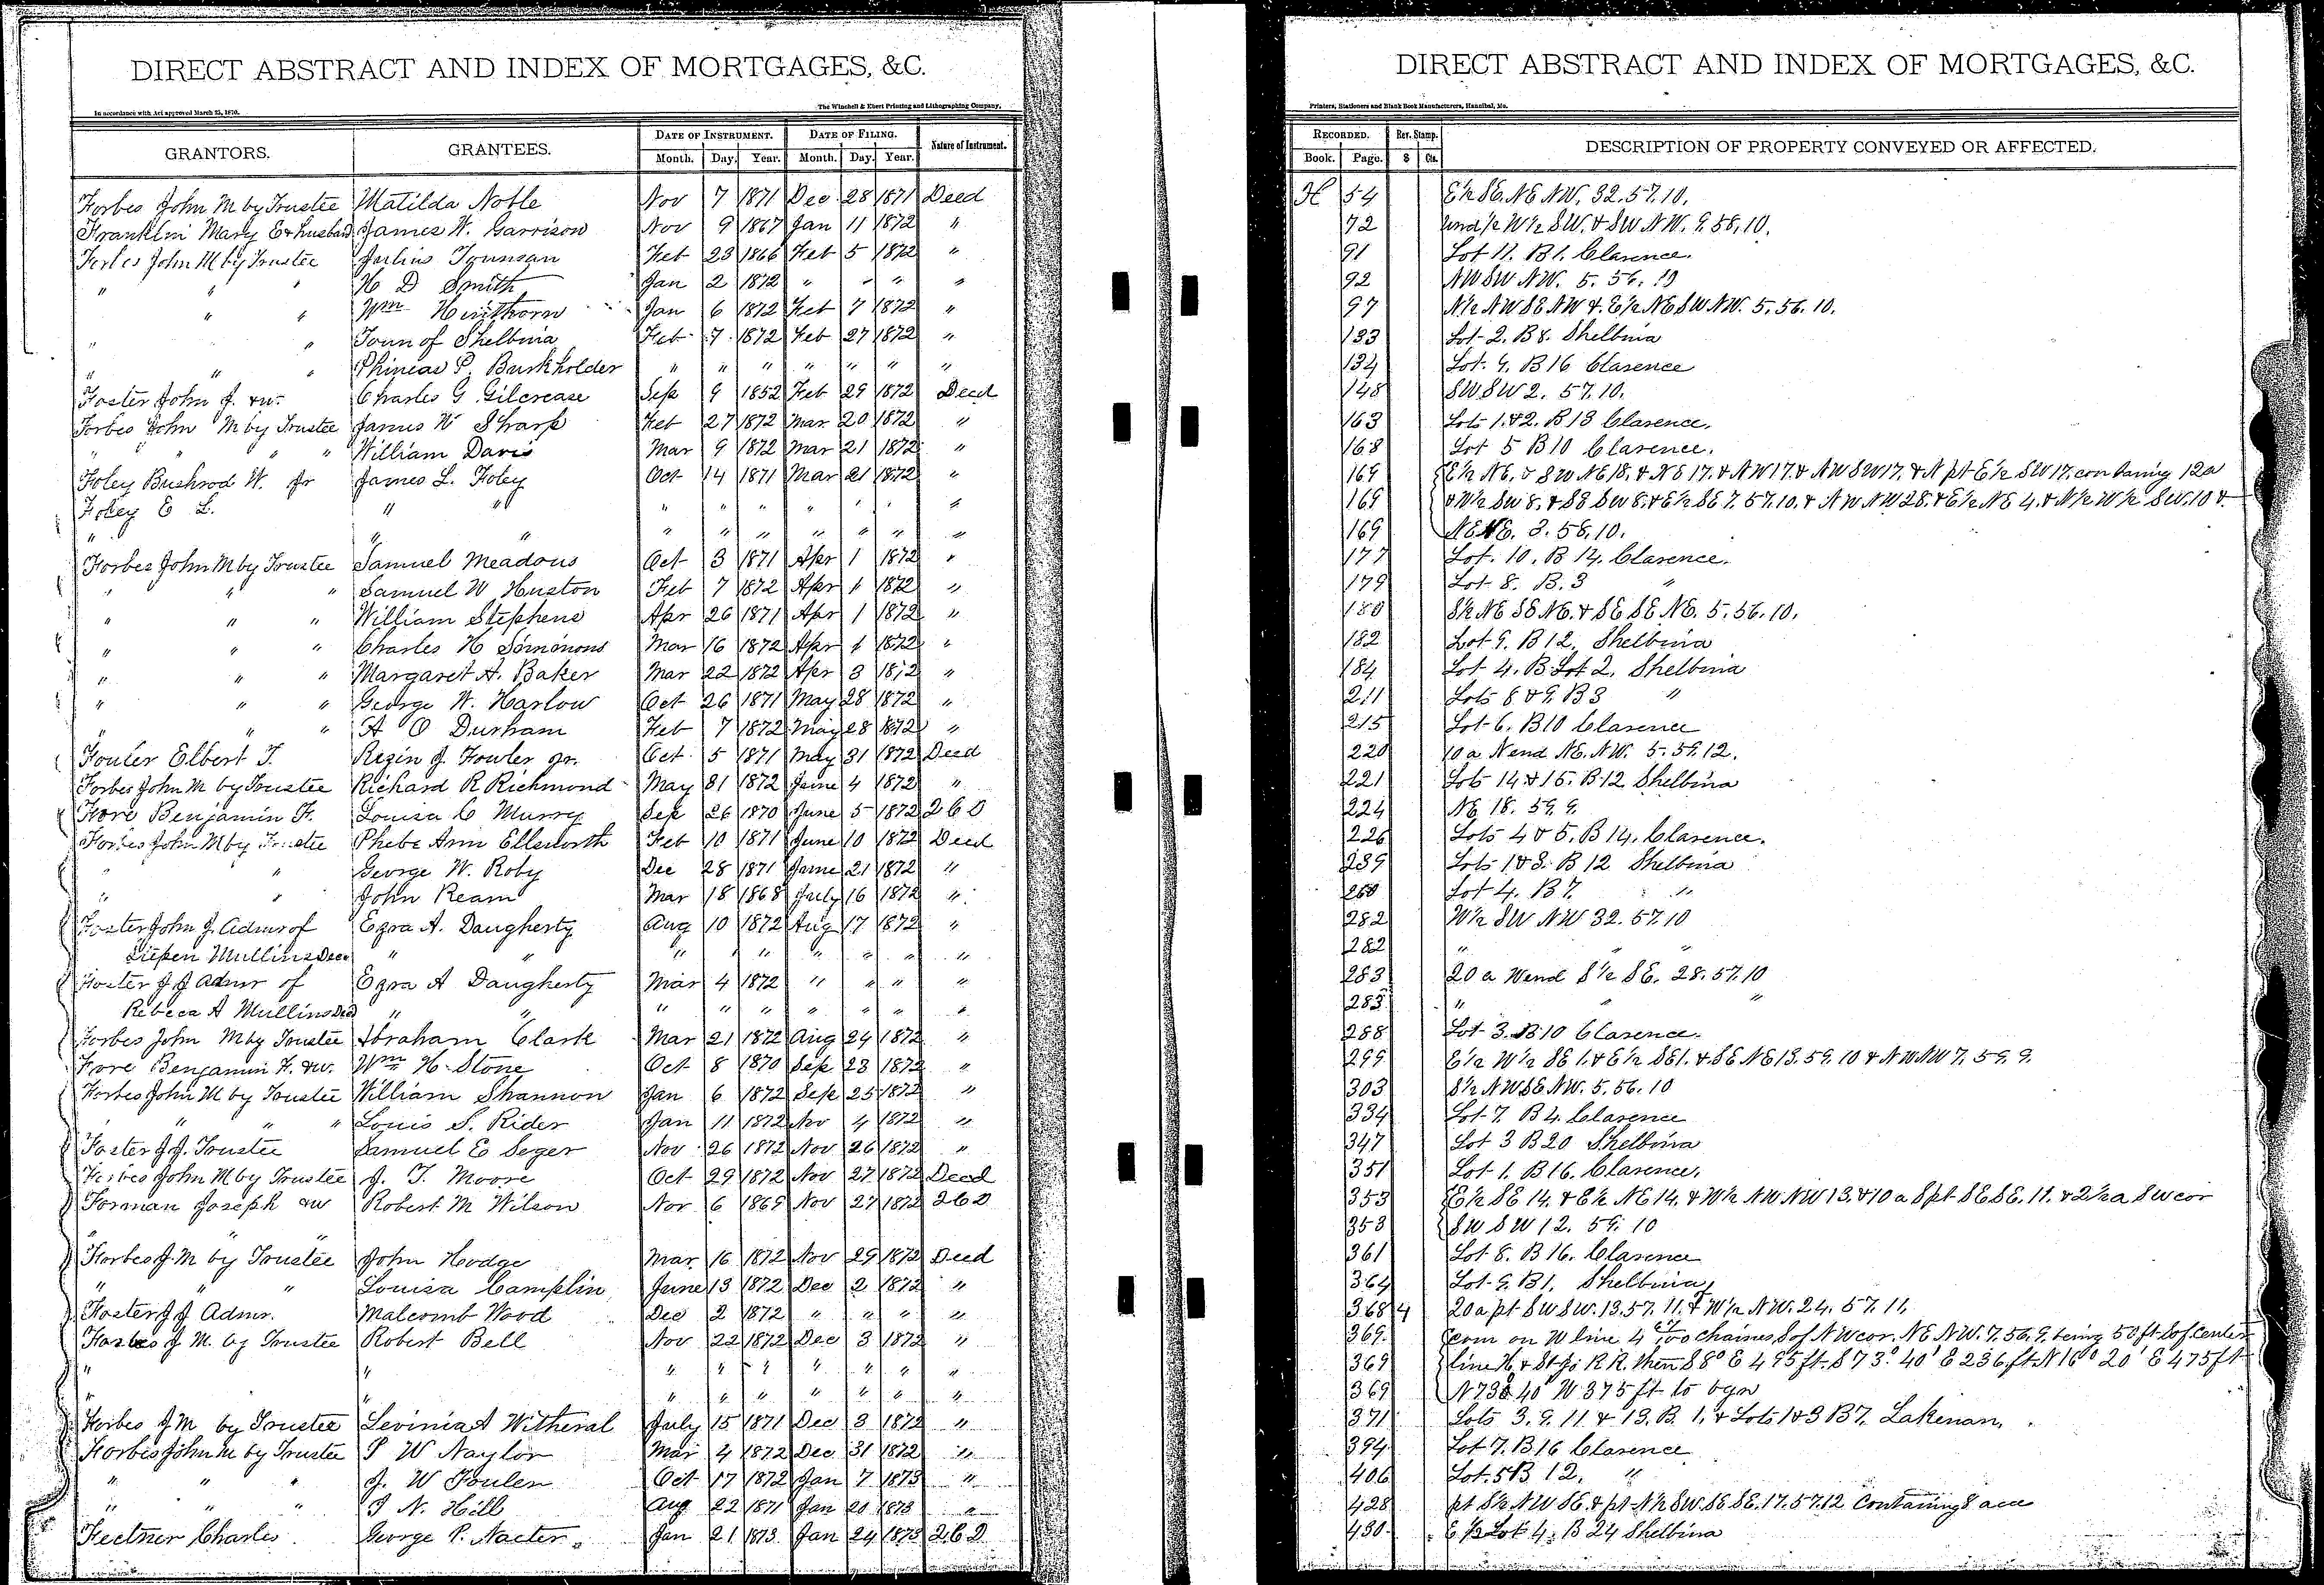 DIRECT ABSTRACT AND INDEX OF MORTGAGES, &C.
In accordance with Act approved March 25, 1870.
The Winchell & Ebert Printing and Lithographing Company,
GRANTORS. GRANTEES. DATE OF INSTRUMENT. DATE OF FILING. Nature of Instrument.
Month. Day. Year. Month. Day. Year.
Forbes John M by Trustee Matilda Noble Nov 7 1871 Dec 28 1871 Deed
Franklin Mary E & husband James W. Garrison Nov 9 1867 Jan 11 1872 "
Forbes John M by Trustee Julius Tounsan Feb 23 1866 Feb 5 1872 "
" " " H D Smith Jan 2 1872 " " " "
" " Wm Hinthorn Jan 6 1872 Feb 7 1872 "
" " Town of Shelbina Feb 7 1872 Feb 27 1872 "
" " " Phineas P. Burkholder " " " " " " "
Foster John J. &w. Charles G Gilcrease Sep 9 1852 Feb 29 1872 Deed
Forbes John M by Trustee James W Sharp Feb 27 1872 Mar 20 1872 "
" " " " William Davis Mar 9 1872 Mar 21 1872 "
Foley Bushrod W. Jr James L. Foley Oct 14 1871 Mar 21 1872 "
Foley E L. " " " " " " " " "
" " " " " " " " " "
Forbes John M by Trustee Samuel Meadows Oct 3 1871 Apr 1 1872 "
" " " Samuel W Huston Feb 7 1872 Apr 1 1872 "
" " " William Stephens Apr 26 1871 Apr 1 1872 "
" " " Charles H Simmons Mar 16 1872 Apr 1 1872 "
" " " Margaret A. Baker Mar 22 1872 Apr 3 1872 "
" " " George W. Harlow Oct 26 1871 May 28 1872 "
" " " A O Durham Feb 7 1872 May 28 1872 "
Fouler Elbert T. Rezin J. Fowler Jr. Oct 5 1871 May 31 1872 Deed
Forbes John M by Trustee Richard R Richmond May 31 1872 June 4 1872 "
Fore Benjamin F. Louisa C Murry Sep 26 1870 June 5 1872 2 C D
Forbes John M by Trustee Phebe Ann Ellsworth Feb 10 1871 June 10 1872 Deed
" " George W. Roby Dec 28 1871 June 21 1872 "
" " John Ream Mar 18 1868 July 16 1872 "
Foster John J. Admr of Ezra A. Daugherty Aug 10 1872 Aug 17 1872 "
Mullins Decd " " " " " " " " "
Foster J J Admr of Ezra A Daugherty Mar 4 1872 " " " "
Rebeca A Mullins Decd " " " " " " " " "
Forbes John M by Trustee Abraham Clark Mar 21 1872 Aug 24 1872 "
Fore Benjamin F. &w. Wm H. Stone Oct 8 1870 Sep 23 1872 "
Forbes John M by Trustee William Shannon Jan 6 1872 Sep 25 1872 "
" " " " Louis S. Rider Jan 11 1872 Nov 4 1872 "
Foster J J. Trustee Samuel E Seger Nov 26 1872 Nov 26 1872 "
Forbes John M by Trustee J. T. Moore Oct 29 1872 Nov 27 1872 Deed
Forman Joseph &w Robert M Wilson Nov 6 1869 Nov 27 1872 2 C D
" "
Forbes J. M by Trustee John Hodge Mar. 16 1872 Nov 29 1872 Deed
" " " Louisa Camplin June 13 1872 Dec 2 1872 "
Foster J J Admr. Malcomb Wood Dec 2 1872 " " " "
Forbes J M. by Trustee Robert Bell Nov 22 1872 Dec 3 1872 "
" " " " " " " " "
" " " " " " " " "
Forbes J M by Trustee Levinia A Witheral July 15 1871 Dec 3 1872 "
Forbes John M by Trustee P W Naylor Mar 4 1872 Dec 31 1872 "
" " " J. W Foulen Oct 17 1872 Jan 7 1873 "
" " " T N. Hill Aug 22 1871 Jan 20 1873 "
Fectner Charles George P. Nacter Jan 21 1873 Jan 24 1873 2 C D
DIRECT ABSTRACT AND INDEX OF MORTGAGES, &C.
Printers, Stationers and Blank Book Manufacturers, Hannibal, Mo.
RECORDED. Rev. Stamp. DESCRIPTION OF PROPERTY CONVEYED OR AFFECTED.
Book. Page. $ Cts.
H 54 E½ SE. NE NW. 32. 57. 10.
72 Und ½ W½ SW. & SW NW. 9. 58. 10.
91 Lot 11. B 1. Clarence.
92 NW SW NW. 5. 56. 10
97 N½ NW SE NW & E½ NE SW NW. 5. 56. 10.
133 Lot 2. B 8. Shelbina
134 Lot 4. B 16 Clarence
148 SW SW 2. 57. 10.
163 Lots 1 & 2. B 13 Clarence.
168 Lot 5 B 10 Clarence.
169 E½ NE. & SW NE 18. & NE 17. & NW 17. & NW SW 17. & N pt E½ SW 17. containing 12a
169 & W½ SW 8. & SE SW 8. & E½ SE 7. 57. 10. & NW NW 28. & E½ NE 4. & N½ W½ SW. 10 &
169 NE NE. 3. 58. 10.
177 Lot. 10. B 14. Clarence.
179 Lot 8. B. 3 "
180 S½ NE SE NE. & SE SE NE. 5. 56. 10.
182 Lot 9. B 12. Shelbina
184 Lot 4. B Lot 2. Shelbina
211 Lots 8 & 9. B 3 "
215 Lot 6. B 10 Clarence
220 10 a N end NE. NW. 5. 59. 12.
221 Lots 14 & 15. B 12 Shelbina
224 NE 18. 59. 9.
226 Lots 4 & 5. B 14. Clarence.
239 Lots 1 & 3. B 12 Shelbina
260 Lot 4. B 7. "
282 W½ SW NW 32. 57. 10
282 " " "
283 20 a W end S½ SE. 28. 57. 10
283 " " "
288 Lot 3. B 10 Clarence.
299 E½ W½ SE 1. & E½ SE 1. & SE NE 13. 59. 10 & NW NW 7. 59. 9.
303 S½ NW SE NW. 5. 56. 10
334 Lot 7. B 4. Clarence
347 Lot 3 B 20 Shelbina
351 Lot 1. B 16. Clarence.
353 E½ SE 14. & E½ NE 14. & W½ NW NW 13. & 10 a S pt SE SE. 11. & 2½ a SW cor
353 SW SW 12. 59. 10
361 Lot 8. B 16. Clarence
364 Lot 9. B 1. Shelbina
368 4 20 a pt SW SW. 13. 57. 11. & W½ NW. 24. 57. 11.
369. com on W line 4 chaines S of NW cor. NE NW. 7. 56. 9. being 50 ft S of center
369 line H & St Jo R R. then S 8° E 495 ft. S 73° 40' E 236 ft. N 16° 20' E 475 ft
369 N 73° 40' W 375 ft to bgn
371 Lots 3. 9. 11 & 13. B 1. & Lots 1 & 3 B 7. Lakenan.
394 Lot 7. B 16 Clarence
406 Lot. 5 B 12. "
428 pt S½ NW SE. & pt N½ SW. SE SE. 17. 57. 12 Containing 8 acs
430 E ½ Lot 4. B 24 Shelbina